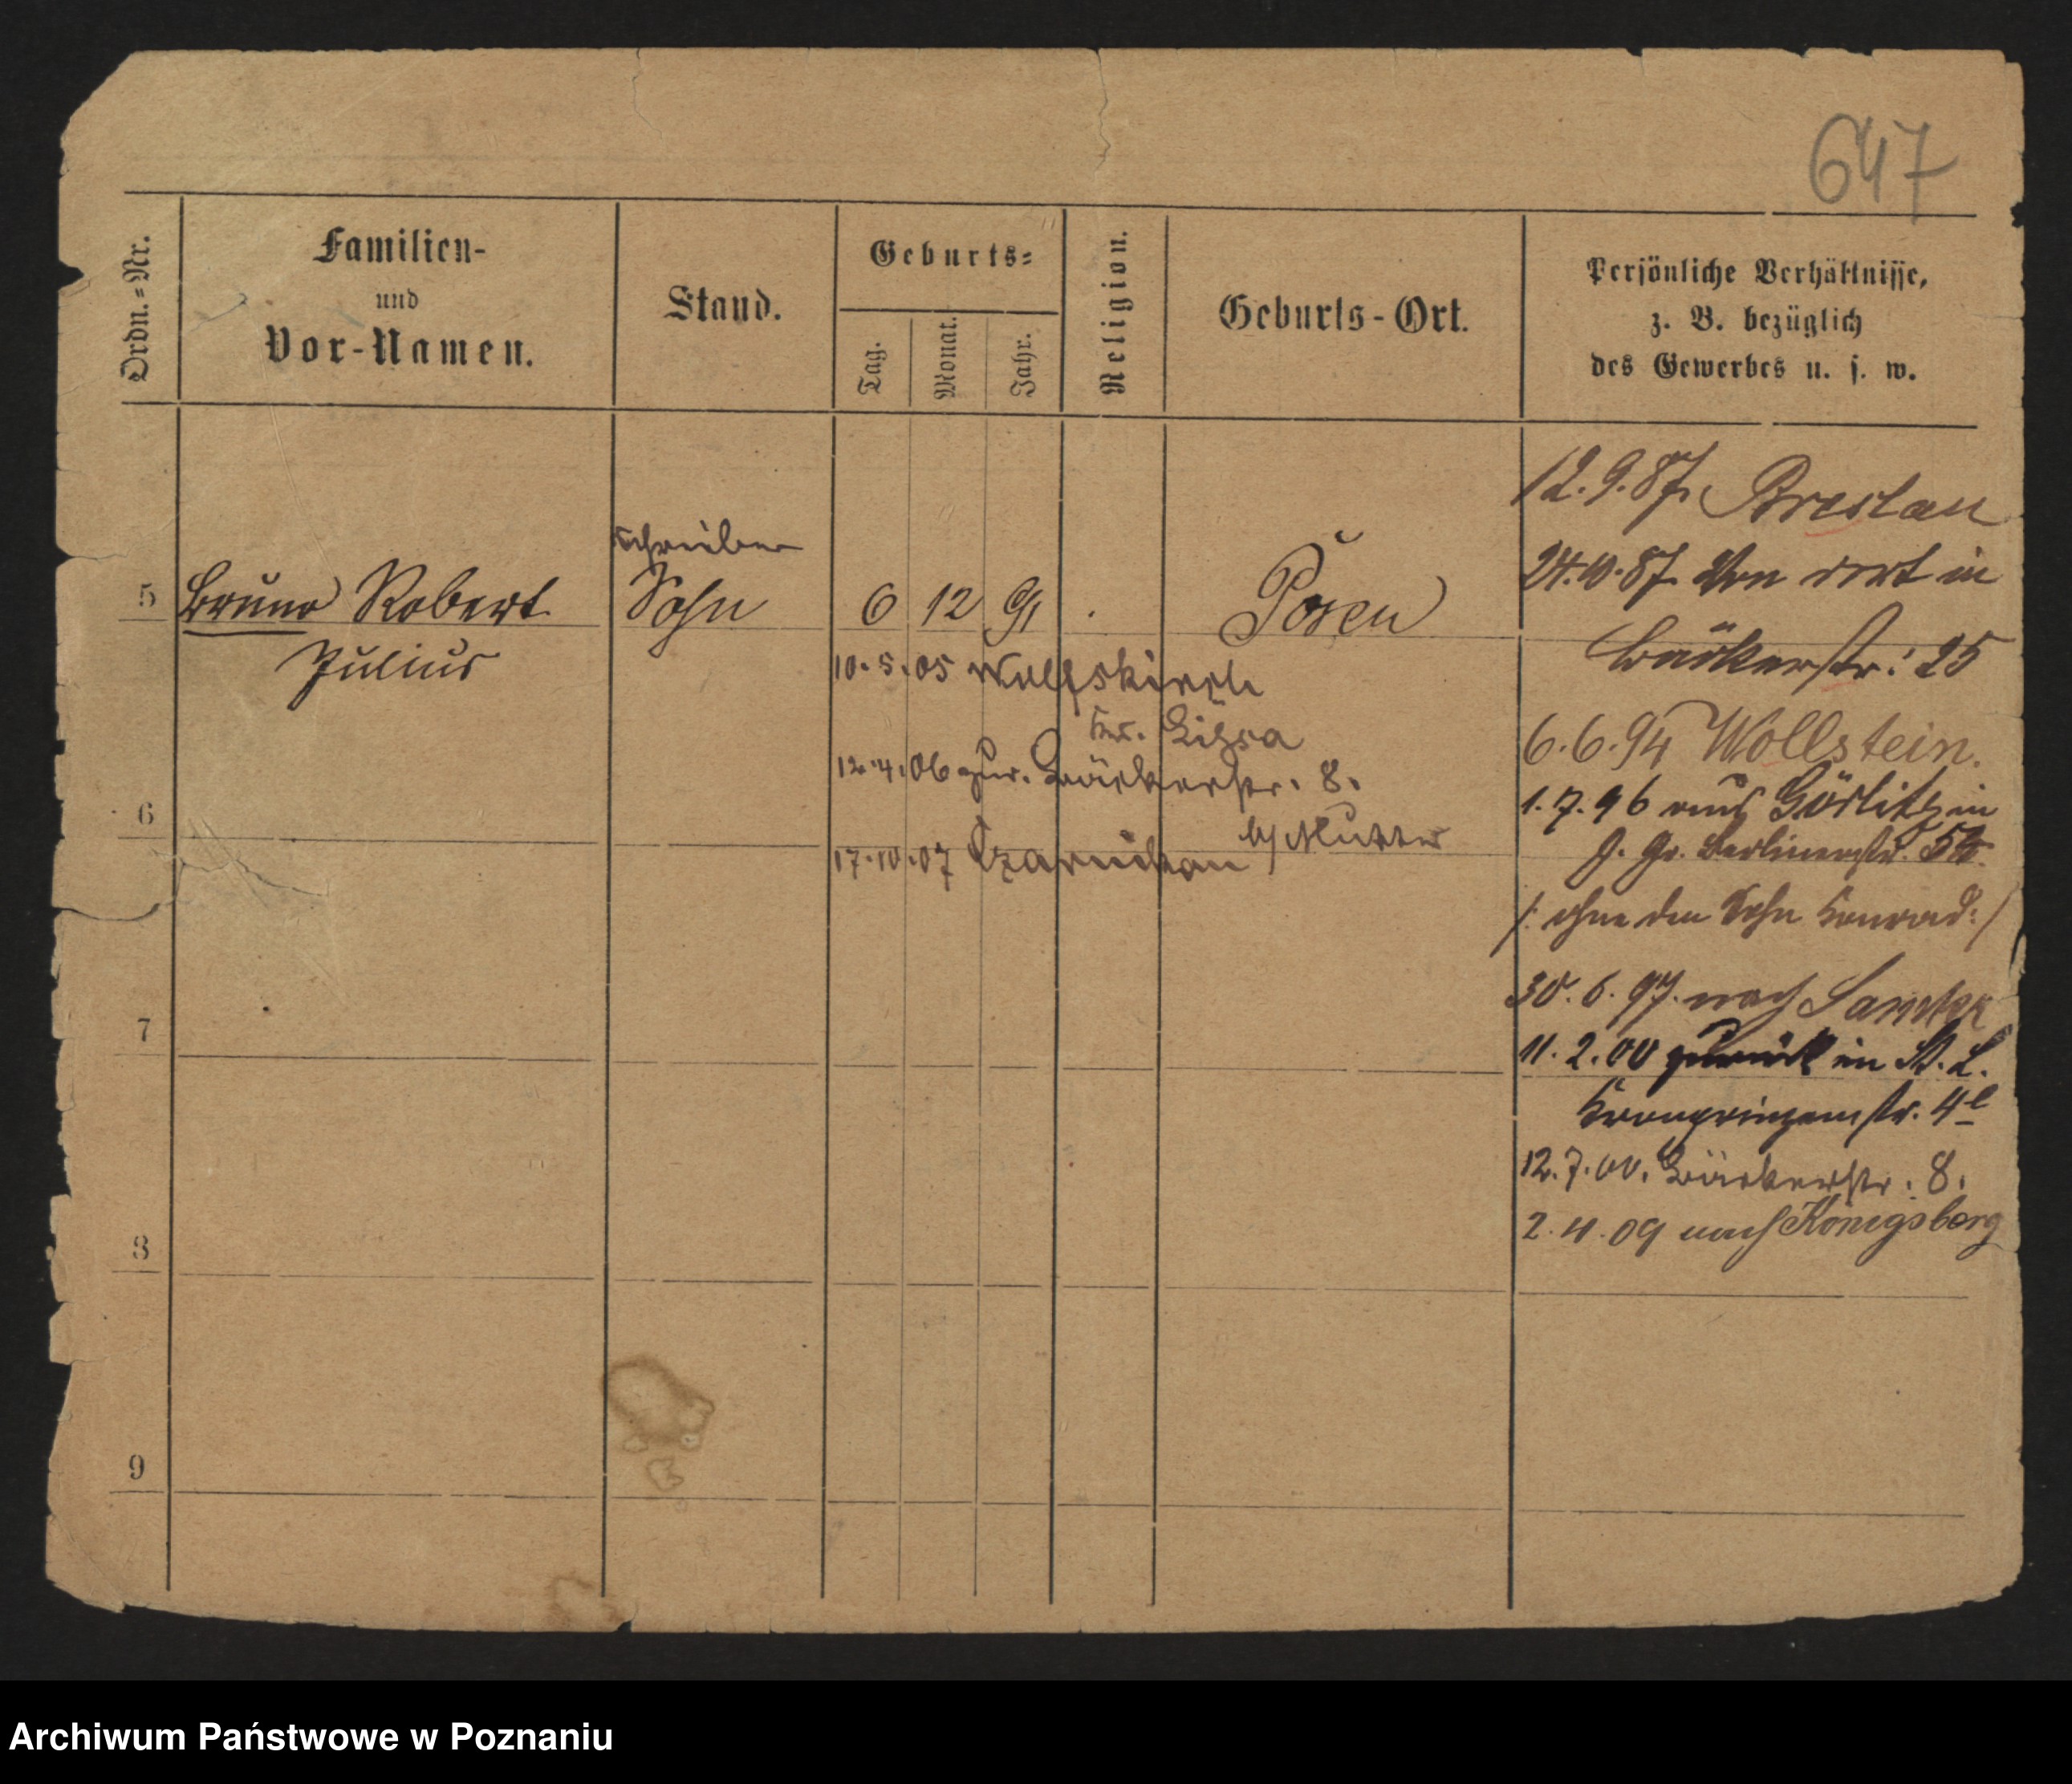 647
Ordn.=Nr.
Familien-
und
Vor-Namen.
Stand.
Geburts=
Tag.
Monat.
Jahr.
Religion.
Geburts-Ort.
Persönliche Verhältnisse,
z. B. bezüglich
des Gewerbes u. s. w.
5
Bruno Robert
Julius
Schreiber
Sohn
6 12 91
Posen
10.5.05 Wolfskirch
Kr. Lissa
12.4.06 zur. Bäckerstr. 8.
b/ Mutter
17.10.07 Czarnikau
12.9.87. Breslau
24.10.87. Von dort in
Bäckerstr: 25
6.6.94 Wollstein.
1.7.96 aus Görlitz in
J. Gr. Berlinerstr.
/: ohne den Sohn Konrad :/
30.6.97. nach Samter
11.2.00 zurück in St. L.
Kronprinzenstr. 4
12.7.00. Bäckerstr. 8.
2.4.09 nach Königsberg
6
7
8
9
Archiwum Państwowe w Poznaniu